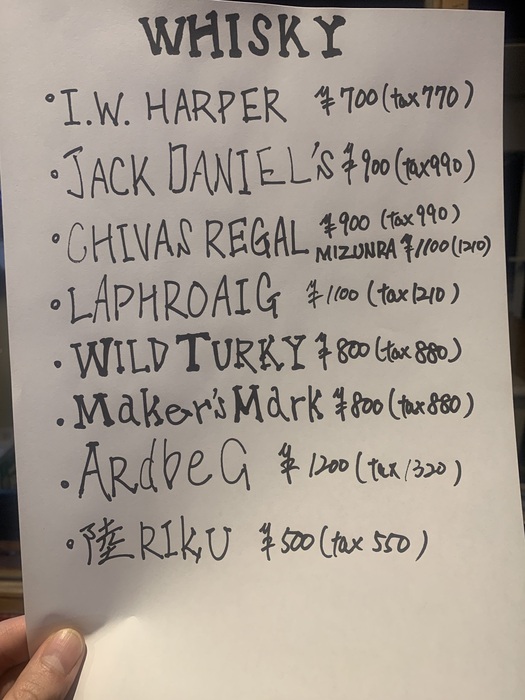 WHISKY
• I.W. HARPER ¥700 (tax 770)
• JACK DANIEL'S ¥900 (tax 990)
• CHIVAS REGAL ¥900 (tax 990)
MIZUNRA ¥1100 (1210)
• LAPHROAIG ¥1100 (tax 1210)
• WILD TURKY ¥800 (tax 880)
• Maker's Mark ¥800 (tax 880)
• ARdbeG ¥1200 (tax 1320)
• 陸 RIKU ¥500 (tax 550)